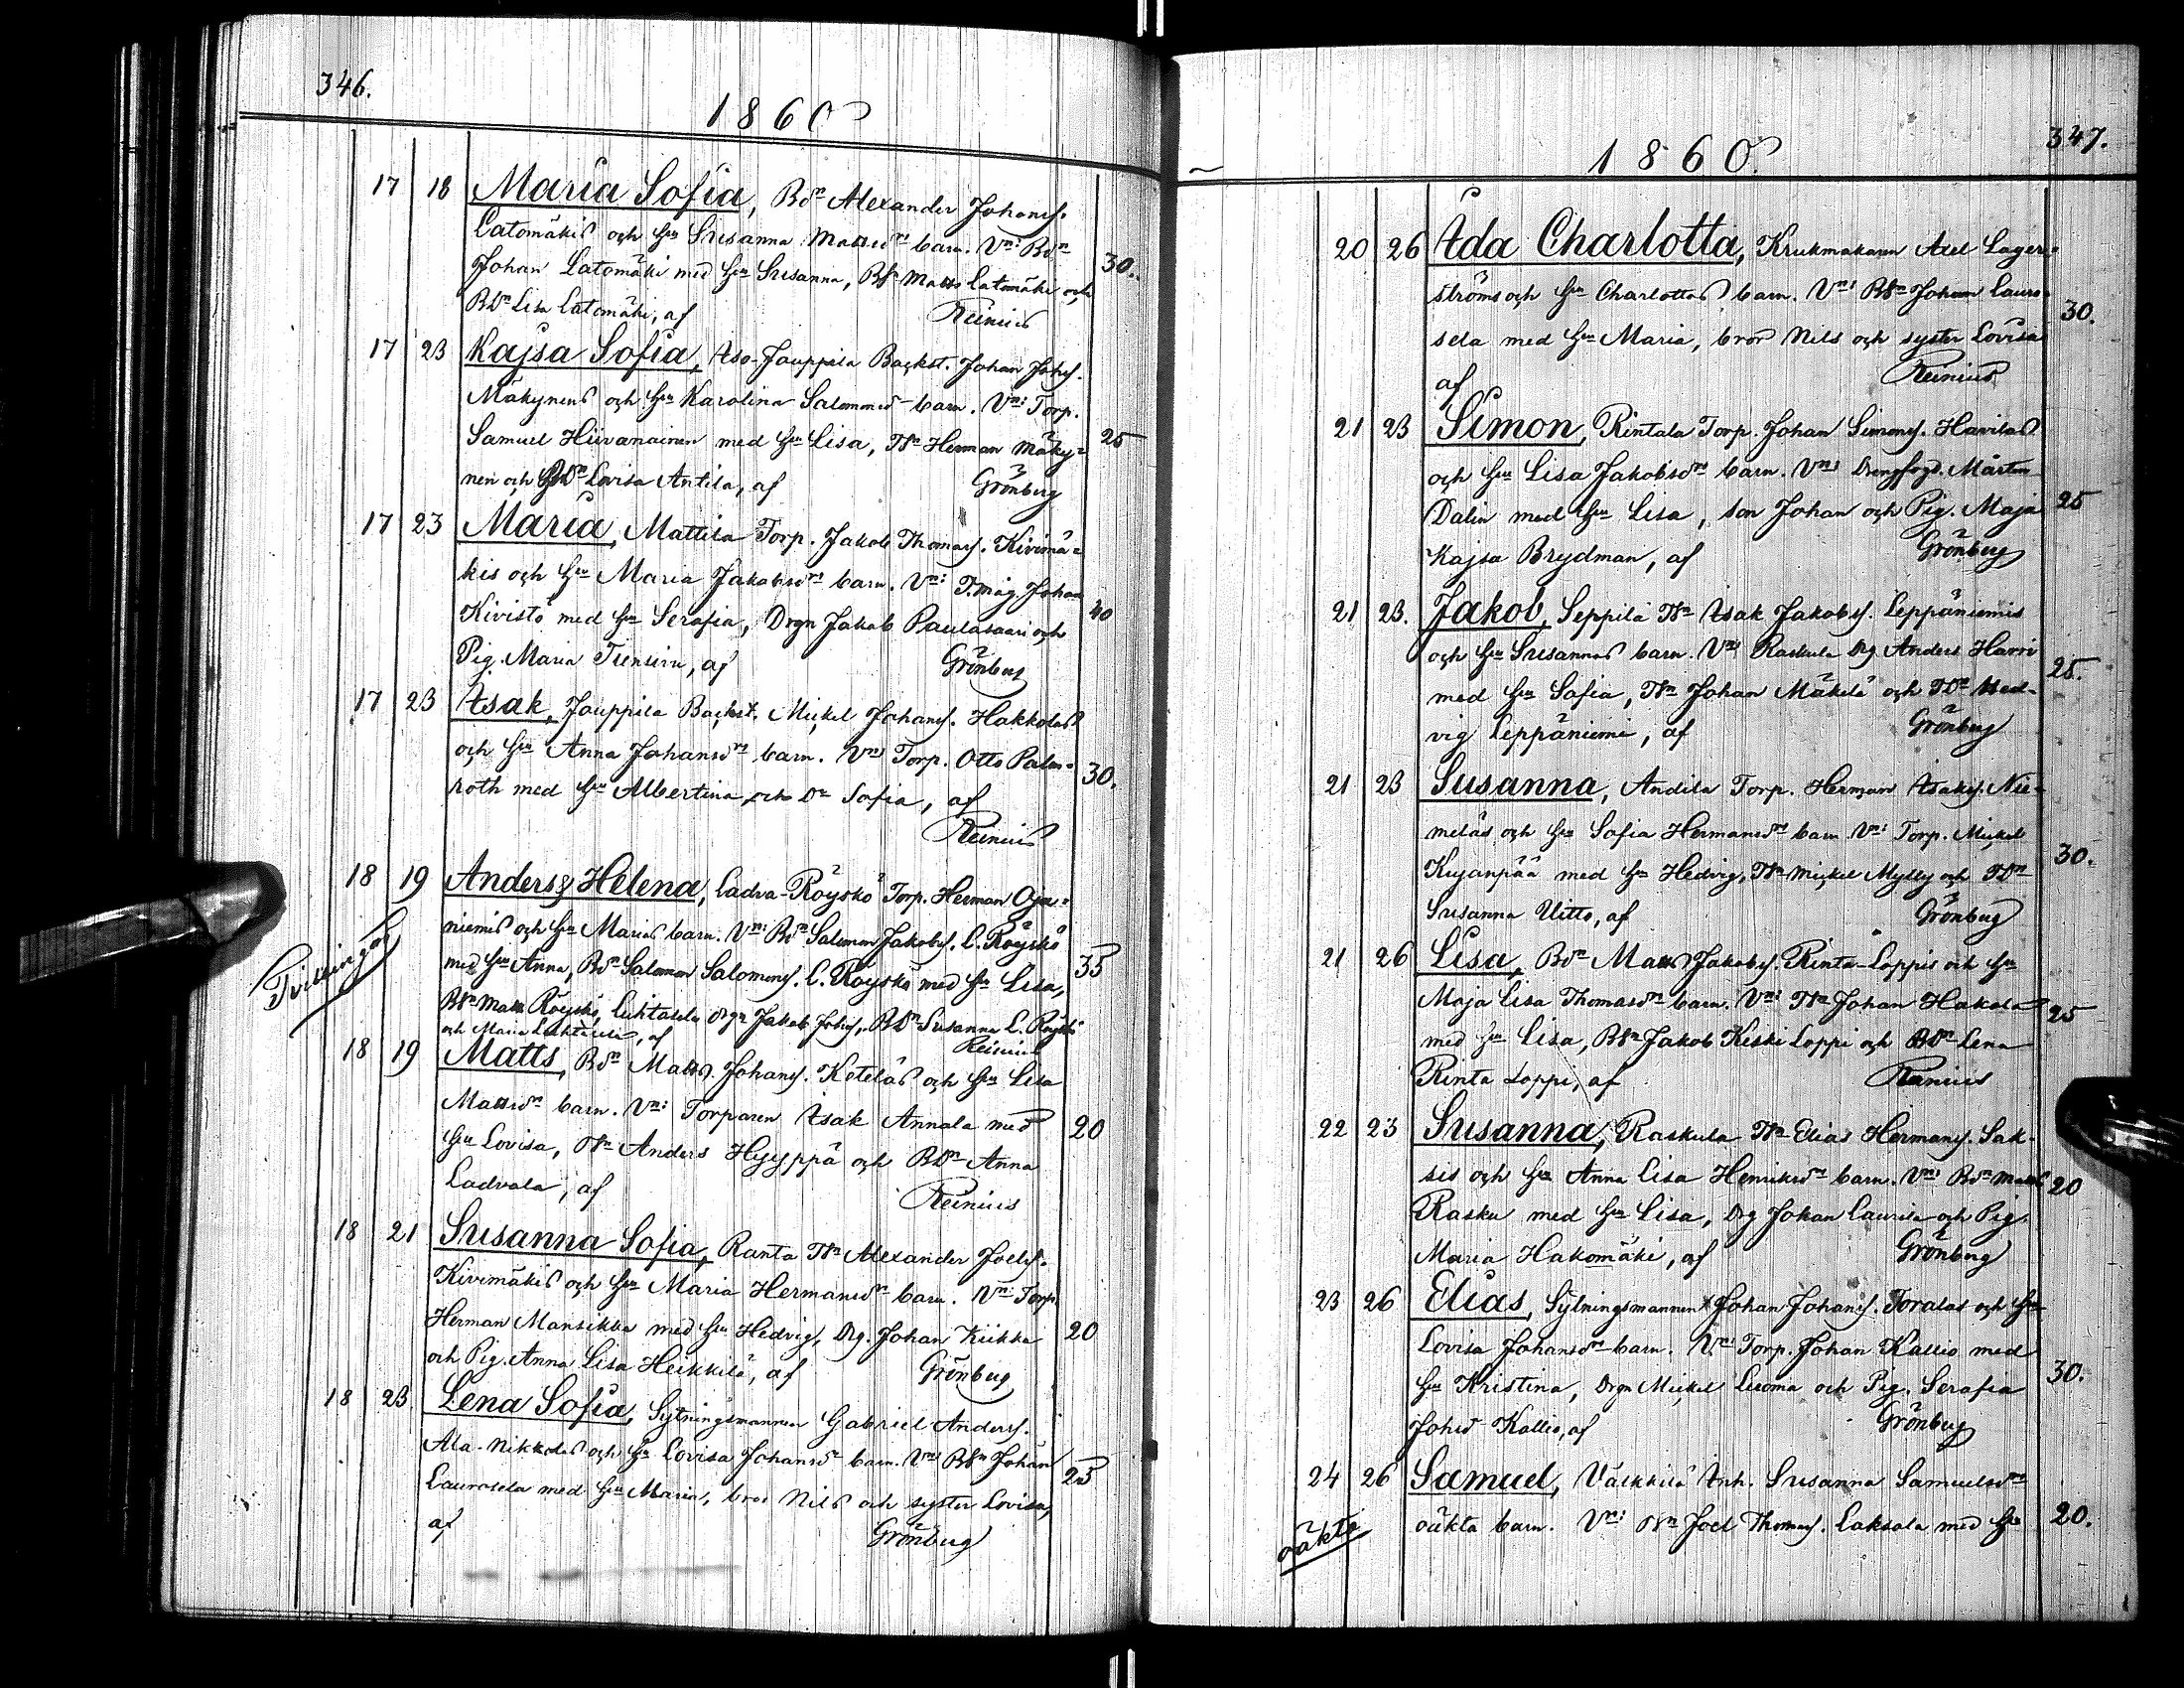 346.
1860
17 18 Maria Sofia, Bdn Alexander Johanss.
Latomäkis och Hu Susanna Mattsdr barn. Vn: Bdn
Johan Latomäki med Hu Susanna, BSn Matts Latomäki och 30.
BDn Lisa Latomäki, af Reinius
17 23 Kajsa Sofia, Iso-Jauppila Backst. Johan Johss.
Mäkynens och Hu Karolina Salomonsd barn. Vn: Torp.
Samuel Hiivanainen med Hu Lisa, TSn Herman Mäky= 25
nen och BDn Lovisa Antila, af Grönberg
17 23 Maria, Mattila Torp. Jakob Thomass. Kivimä=
kis och Hu Maria Jakobsdr barn. Vn: T.måg. Johan
Kivistö med Hu Serafia, Drgn Jakob Paulasaari och 40
Pig. Maria , af Grönberg
17 23 Isak, Jauppila Backst. Mickel Johanss. Hakkolas
och Hu Anna Johansdr barn. Vn: Torp. Otto Palm-
roth med Hu Albertina och Dr Sofia, af 30.
Reinius
18 19 Anders & Helena, Ladva-Röyskö Torp. Herman Oja=
niemis och Hu Marias barn. Vn: Bdn Salomon Jakobss. L. Röyskö
Tvillingar
med Hu Anna, Bdn Salomon Salomonss. L. Röyskö med Hu Lisa, 35
BSn Matts Röyskö, Luhtasela Drgn Jakob Johss, BDn Susanna L. Röyskö
och Maria , af Reinius
18 19 Matts, Bdn Matts Johanss. Ketelas och Hu Lisa
Mattsdr barn. Vn: Torparen Isak Annala med 20
Hu Lovisa, TSn Anders Hyyppä och BDn Anna
Ladvala, af Reinius
18 21 Susanna Sofia, Ranta TSn Alexander Joelss.
Kivimäkis och Hu Maria Hermansdr barn. Vn: Torp.
Herman Mansikka med Hu Hedvig, Drg. Johan Kiikka 20
och Pig. Anna Lisa Heikkilä, af Grönberg
18 23. Lena Sofia, Sytningsmannen Gabriel Anderss.
Ala-Nikkolas och Hu Lovisa Johansdr barn. Vn: BSn Johan
Laurosela med Hu Maria, bror Nils och syster Lovisa, 25
af Grönberg
347.
1860.
20 26 Ada Charlotta, Krukmakaren Axel Lager=
ströms och Hu Charlottas barn. Vn: BSn Johan Lauro=
sela med Hu Maria, bror Nils och syster Lovisa 30.
af Reinius
21 23 Simon, Rintala Torp. Johan Simonss. Havilas
och Hu Lisa Jakobsdr barn. Vn: Drengfogd. Mårten
Dalin med Hu Lisa, son Johan och Pig. Maja 25
Kajsa Brydman, af Grönberg
21 23. Jakob, Seppilä TSn Isak Jakobss. Leppäniemis
och Hu Susannas barn. Vn: Raskula Drg Anders Harri
med Hu Sofia, TSn Johan Mäkelä och TDr Hed- 25.
vig Leppäniemi, af Grönberg
21 23 Susanna, Andila Torp. Herman Isakss. Nie-
meläs och Hu Sofia Hermansdr barn. Vn: Torp. Mickel
Kujanpää med Hu Hedvig, TSn Mickel Mylly och TDn 30.
Susanna Uitto, af Grönberg
21 26 Lisa, Bdn Matts Jakobss. Rinta-Loppis och Hu
Maja Lisa Thomasdr barn. Vn: TSn Johan Hakola 25
med Hu Lisa, BSn Jakob Keski Loppi och BDn Lena
Rinta Loppi, af Reinius
22 23 Susanna, Raskula TSn Elias Hermanss. Sak-
sis och Hu Anna Lisa Henriksdr barn. Vn: Bdn Matts 20
Rasku med Hu Lisa, Drg Johan Laurila och Pig.
Maria Hakomäki, af Grönberg
23 26 Elias, Sytningsmannen Johan Johanss. Toralas och Hu
Lovisa Johansdr barn. Vn: Torp. Johan Kallio med
Hu Kristina, Drgn Mickel Luoma och Pig. Serafia 30.
Johsd Kallio, af Grönberg
24 26 Samuel, Välkkilä Inh. Susanna Samuelsdr
oäkta
oäkta barn. Vn: TSn Joel Thomass. Laksala med Hu 20.